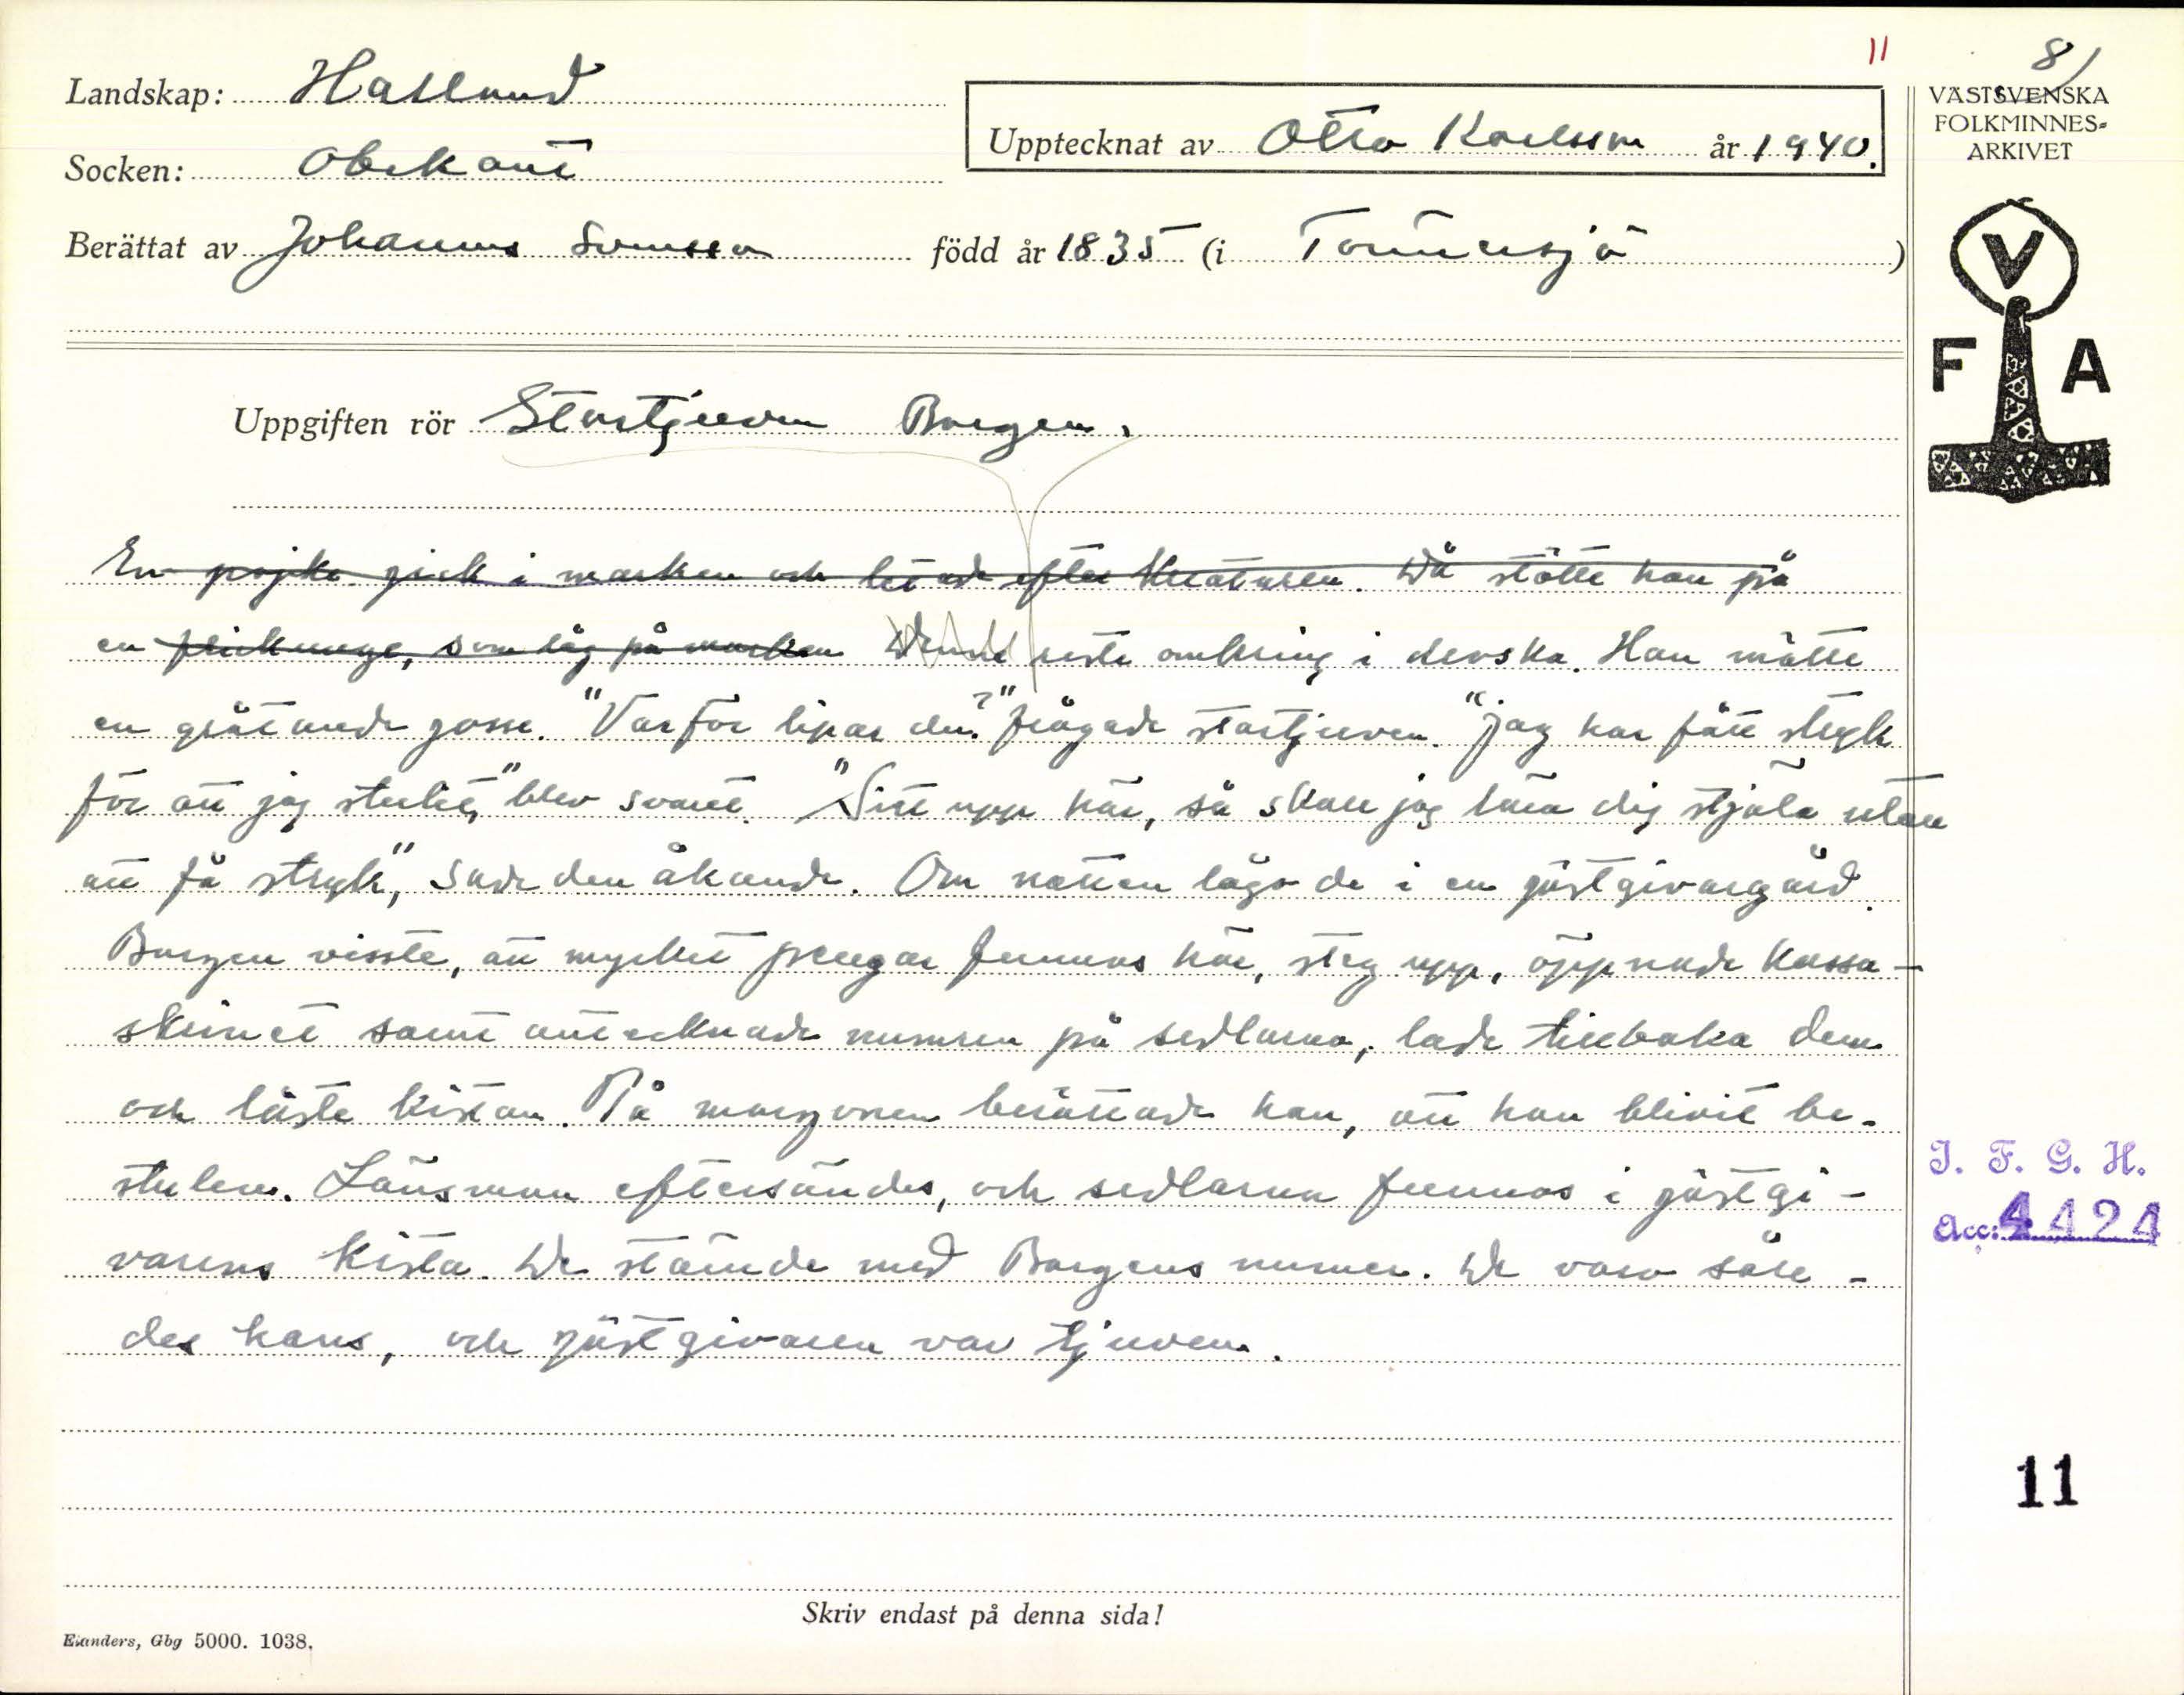 11
8/
Landskap: Halland
Upptecknat av Otto Karlsson år 1940.
VÄSTSVENSKA
FOLKMINNES-
ARKIVET
Socken: Obekant
Berättat av Johannes Svensson född år 1835 (i Tönnersjö)
V
F A
Uppgiften rör Stortjuven Borgen.
En pojke gick i marken och letade efter kreaturen. Då stötte han på
en flickunge, som låg på marken Denne reste omkring i droska. Han mötte
en gråtande gosse. "Varför lipar du?" frågade stortjuven. "Jag har fått stryk
för att jag stulit," blev svaret. "Sitt upp här, så skall jag lära dig stjäla utan
att få stryk", sade den åkande. Om natten lågo de i en gästgivargård.
Borgen visste, att mycket pengar funnos här, steg upp, öppnade kassa-
skrinet samt antecknade numren på sedlarna, lade tillbaka dem
och låste kistan. På morgonen berättade han, att han blivit be-
stulen. Länsman eftersändes, och sedlarna funnos i gästgi-
varens kista. De stämde med Borgens numer. De voro såle-
des hans, och gästgivaren var tjuven.
I. F. G. H.
Acc: 4424
11
Skriv endast på denna sida!
Elanders, Gbg 5000. 1038.